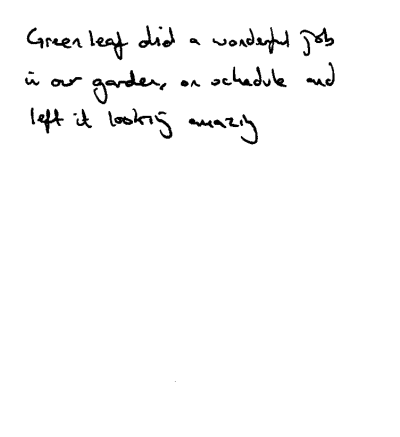 Greenleaf did a wonderful job
in our garden, on schedule and
left it looking amazing